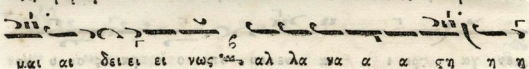 και αι δει εἰ ει νως αλ λα να α α ςη η ἡ